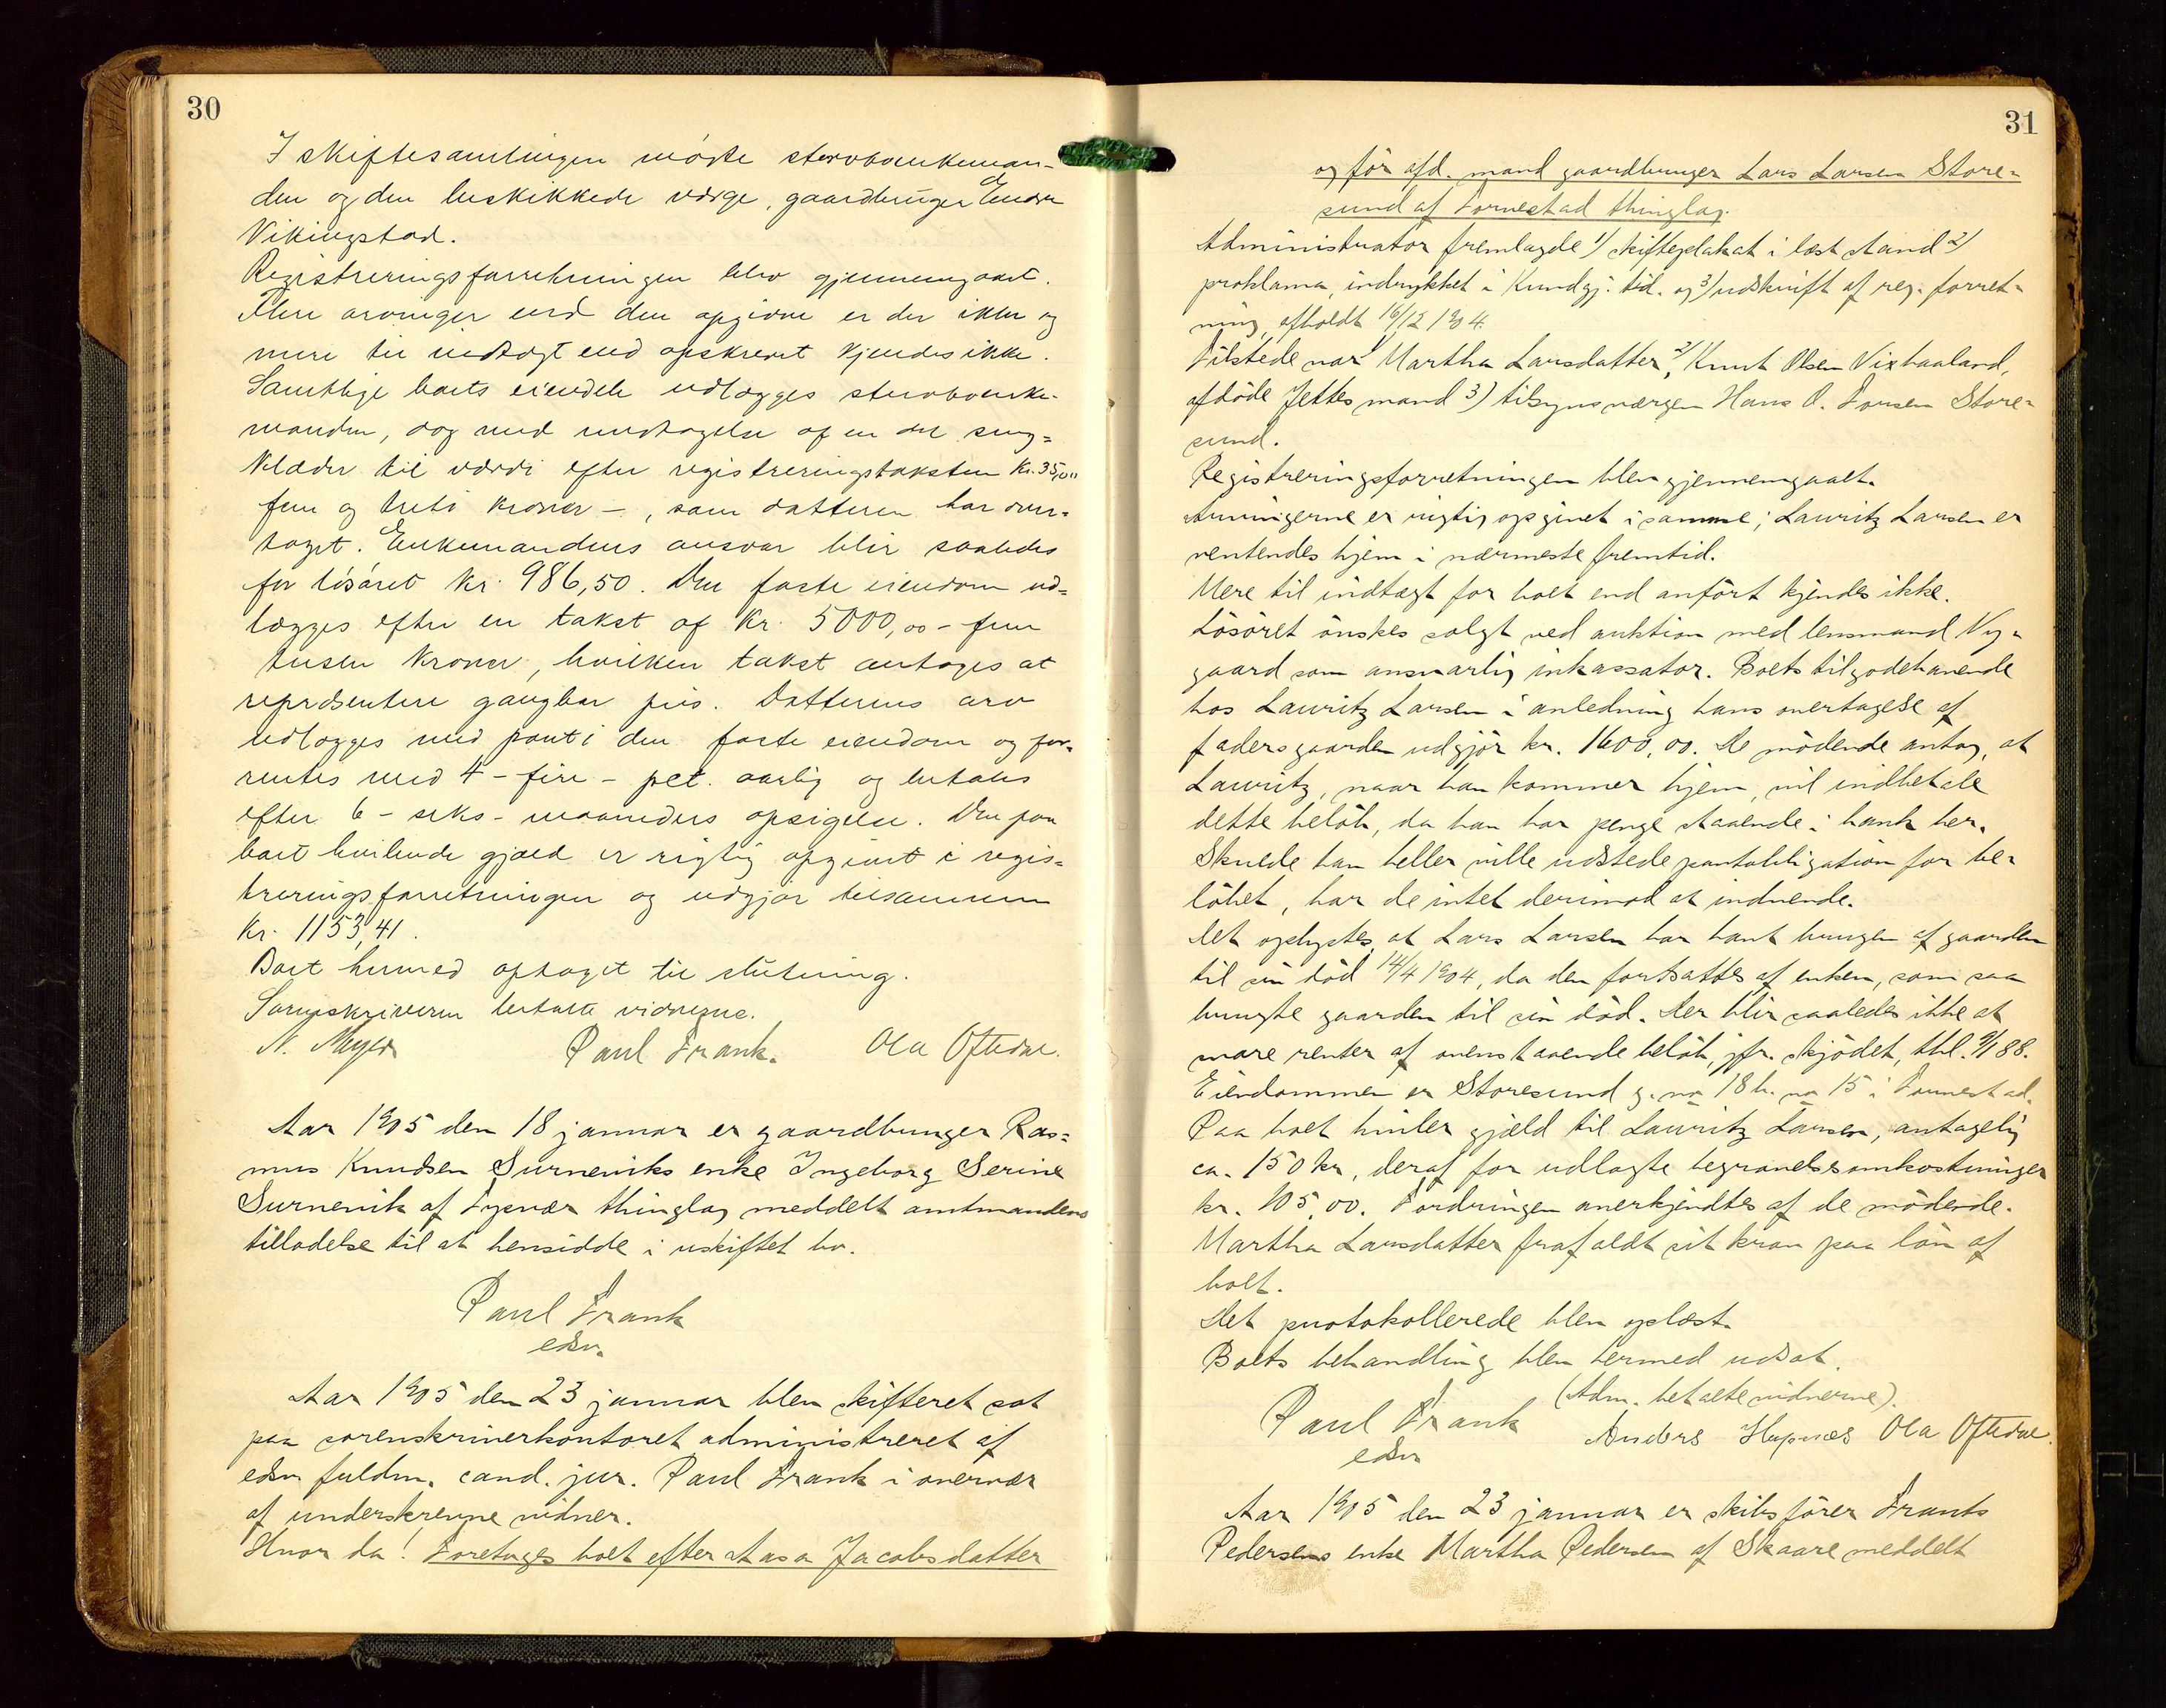 30
I skiftesamlingen mødte stervboenkeman-
den og den beskikkede værge, gaardbruger Endre
Vikingstad.
Registreringsforretningen blev gjennemgaaet.
Flere arvinger end den opgivne er der ikke og
mere til indtægt end opskrevet kjendes ikke.
Samtlige boets eiendele udlægges stervboenke-
manden, dog med undtagelse af en del seng=
klæder til værdi efter registreringstaksten kr. 35,00
fem og treti kroner –, som datteren har over-
taget. Enkemandens ansvar blir saaledes
for løsøret kr. 986,50. Den faste eiendom ud=
lægges efter en takst af kr. 5000,00 – fem
tusen kroner, hvilken takst antages at
repræsentere gangbar pris. Datterens arv
udlægges med pant i den faste eiendom og for-
rentes med 4 – fire – pct. aarlig og betales
efter 6 – seks – maaneders opsigelse. Den paa
boet hvilende gjæld er rigtig opgivet i regis=
treringsforretningen og udgjør tilsammen
kr. 1153,41.
Boet hermed optaget til slutning.
Sorenskriveren betalte vidnerne.
N. Meyer Paul Frank. Ola Oftedal.
Aar 1905 den 18 januar er gaardbruger Ras=
mus Knudsen Surneviks enke Ingeborg Serine
Surnevik af Tysvær thinglag meddelt amtmandens
tilladelse til at hensidde i uskiftet bo.
Paul Frank
edsv.
Aar 1905 den 23 januar blev skifteret sat
paa sorenskriverkontoret administreret af
edsv. fuldm. cand. jur. Paul Frank i overvær
af underskrevne vidner.
Hvor da! Foretages boet efter Aasa Jacobsdatter
31
og før afd. mand gaardbruger Lars Larsen Store=
sund af Tornestad thinglag.
Administrator fremlagde 1) skifteplakat i læst stand 2)
proklama, indrykket i Kundgj. tid. og 3) udskrift af reg. forret-
ning, afholdt 16/12 1904.
Tilstede var 1) Martha Larsdatter, 2) Knut Olsen Vixhaaland,
afdøde Jettes mand 3) tilsynsværgen Hans O. Larsen Store-
sund.
Registreringsforretningen blev gjennemgaaet.
Arvingerne er rigtig opgivet i samme; Lauritz Larsen er
ventendes hjem i nærmeste fremtid.
Mere til indtægt for boet end anført kjendes ikke.
Løsøret ønskes solgt ved auktion med lensmand Ny-
gaard som ansvarlig inkassator. Boets tilgodehavende
hos Lauritz Larsen i anledning hans overtagelse af
fadersgaarden udgjør kr. 1600,00. De mødende antog, at
Lauritz, naar han kommer hjem, vil indbetale
dette beløb, da han har penge staaende i bank her.
Skulde han heller ville udstede pantobligation for be-
løbet, har de intet derimod at indvende.
Det oplystes, at Lars Larsen har havt brugen af gaarden
til sin død 14/4 1904, da den fortsattes af enken, som saa
brugte gaarden til sin død. Der blir saaledes ikke at
svare renter af ovenstaaende beløb, jfr. skjødet, thl. 9/1 88.
Eiendommen er Storesund g. no 18 b. no 15 i Tornestad.
Paa boet hviler gjæld til Lauritz Larsen, antagelig
ca. 150 kr, deraf for udlagte begravelsesomkostninger
kr. 105,00. Fordringen anerkjendtes af de mødende.
Martha Larsdatter frafaldt sit krav paa løn af
boet.
Det protokollerede blev oplæst.
Boets behandling blev hermed udsat.
(Adm. betalte vidnerne).
Paul Frank Anders Ola Oftedal.
edsv
Aar 1905 den 23 januar er skibsfører Frants
Pedersens enke Martha Pedersen af Skaare meddelt